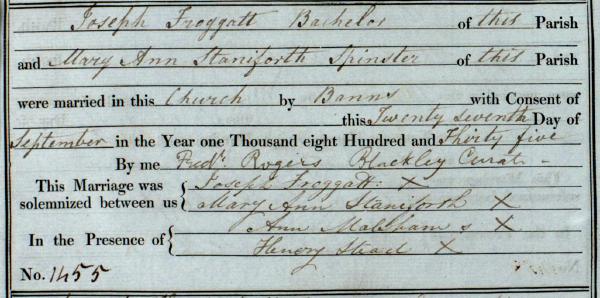 Joseph Froggatt Bachelor of this Parish
and Mary Ann Staniforth Spinster of this Parish
were married in this Church by Banns with Consent of
this Twenty Seventh Day of
September in the Year one Thousand eight Hundred and Thirty five
By me Fredk. Rogers Blackley Curate
This Marriage was solemnized between us { Joseph Froggatt X
Mary Ann Staniforth X
In the Presence of { Ann X
Henry Stead X
No. 1455